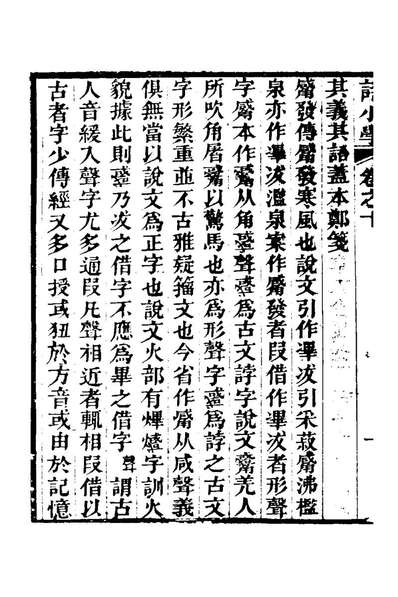 詩小學 卷之十
其義其語蓋本鄭箋
觱發傳觱發寒風也說文引作㓖冹引采菽觱沸檻
泉亦作㓖冹濫泉案作觱發者叚借作㓖冹者形聲
字觱本作从角聲爲古文誖字說文羌人
所吹角屠以驚馬也亦爲形聲字爲誖之古文
字形繁重並不古雅疑籀文也今省作觱从咸聲義
俱無當以說文爲正字也說文火部有熚字訓火
貌據此則乃冹之借字不應爲畢之借字 聲謂古
人音緩入聲字尤多通叚凡聲相近者輒相叚借以
古者字少傳經又多口授或狃於方音或由於記憶